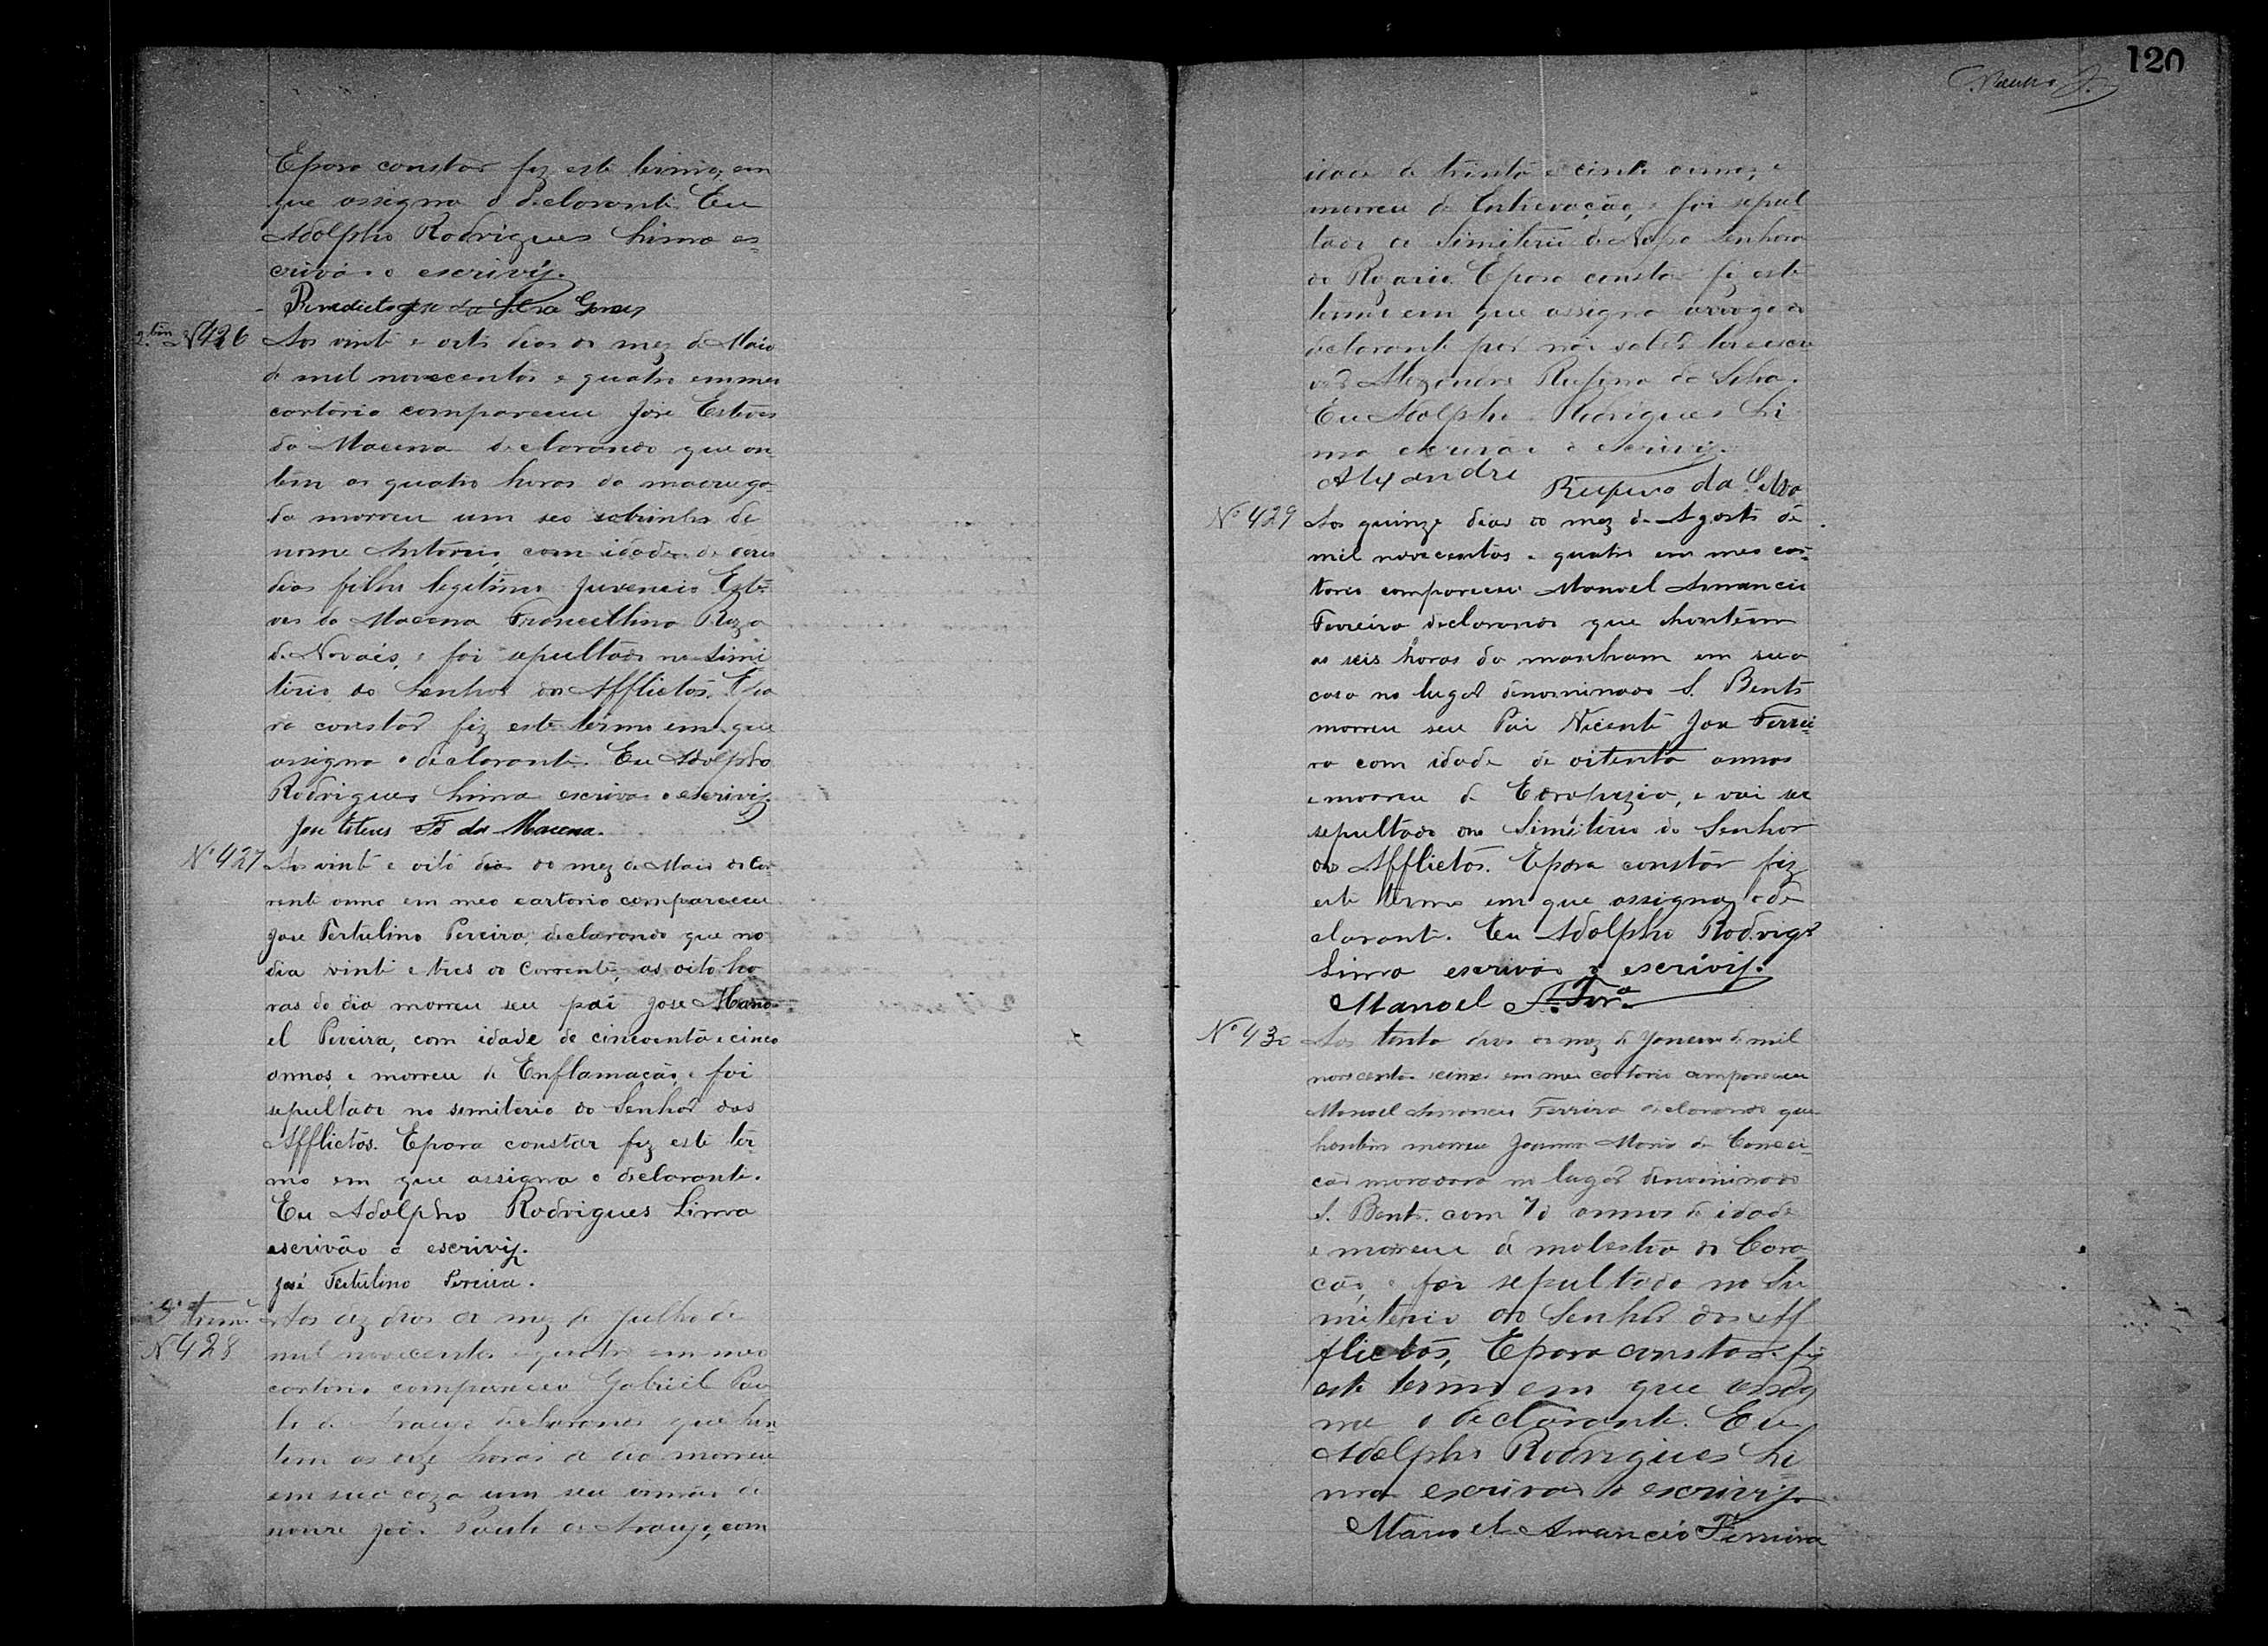 Epara constar fiz este termo, em
que assigna o declarante. Eu
Adolpho Rodrigues Lima es=
crivão o escrivy.
Benedicto José da Silva Gomes
Nº 426
Aos vinte e oito dias do mez de Maio
de mil novecentos e quatro em meu
cartorio compareceu José Esteves
da Macena declarando que on
tem as quatro horas da madruga
da morreu um seo sobrinho de
nome Antonio, com idade de
dias filho legitimo Juvencio Este
ves da Macena Francellina Roza
de Novaes, e foi sepultado no simi
terio do Senhor dos Afflictos. Epa
ra constar fiz este termo em que
assigna o declarante. Eu Adolpho
Rodrigues Lima escrivão o escrivy.
José Esteves Fº da Macena.
Nº 427
Aos vinte e oito dias do mez de Maio do Cor
rente anno em meo cartorio compareceu
José Tertulino Pereira, declarando que no
dia vinte e tres do Corrente, as oito ho
ras do dia morreu seu pai José Mano
el Pereira, com idade de cincoenta e cinco
annos, e morreu de Enflamação, e foi
sepultado no simiterio do Senhor dos
Afflictos. Epara constar fiz este ter
mo em que assigna o declarante.
Eu Adolpho Rodrigues Lima
escrivão o escrivy.
José Tertulino Pereira.
Nº 428
Aos dez dias do mez de Julho de
mil novecentos e quatro em meo
cartorio compareceu Gabriel Pau
lo de Araujo declarando que hon
tem as onze horas do dia morreu
em sua caza um seu irmão de
nome João Paulo de Araujo, com
120
idade de trinta e cinco annos, e
morreu de , e foi sepul
tado no Simiterio de Nossa Senhora
do Rozario. Epara constar fiz este
termo em que assigna arrogo do
declarante por não saber ler e escre
ver Alexandre Rufino da Silva.
Eu Adolpho Rodrigues Li
ma escrivão o escrivy.
Alexandre Rufino da Silva
Nº 429
Aos quinze dias do mez de Agosto de
mil novecentos e quatro em meo car
torio compareceu Manoel Amancio
Ferreira declarando que hontem
as seis horas da manham em sua
casa no lugar denominado S. Bento
morreu seu Pai Vicente José Ferrei
ra com idade de oitenta annos
e morreu de , e vai ser
sepultado no Simiterio do Senhor
dos Afflictos. Epara constar fiz
este termo em que assigna o de
clarante. Eu Adolpho Rodrigs
Lima escrivão o escrivy.
Manoel A. Ferª
Nº 430
Aos trinta dias do mez de Janeiro de mil
novecentos e cinco em meu cartorio compareceu
Manoel Amancio Ferreira declarando que
hontem morreu Joanna Maria da Concei
ção moradora no lugar denominado
S. Bento com 70 annos de idade
e morreu de molestia do Cora
ção, e foi sepultada no Si
miterio do Senhor dos Af
flictos, Epara constar fiz
este termo em que assig
na o declarante. Eu
Adolpho Rodrigues Li
ma escrivão o escrivy.
Manoel Amancio Ferreira